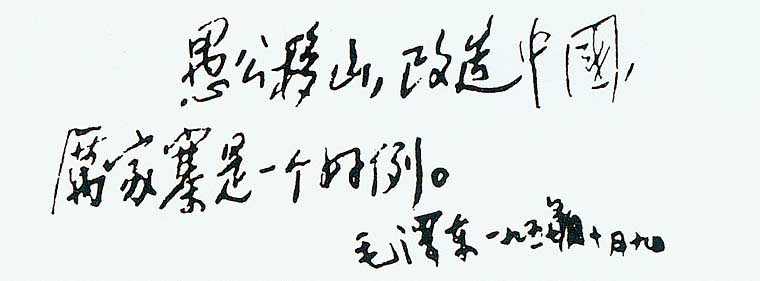 愚公移山,改造中國,
厲家寨是一个好例。
毛澤东 一九五 十月九